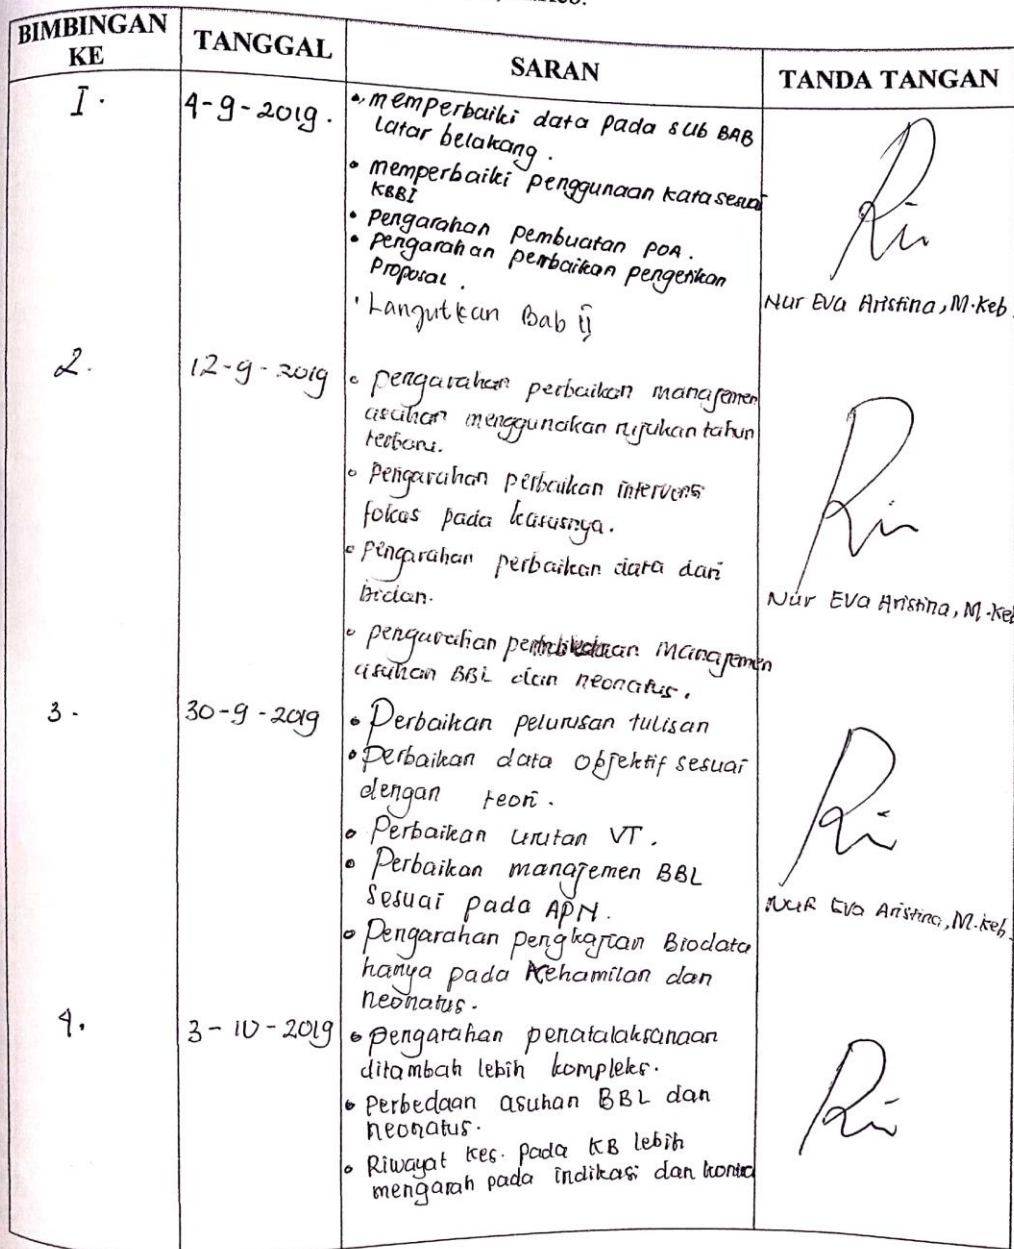 BIMBINGAN KE TANGGAL SARAN TANDA TANGAN
I. 4-9-2019. • memperbaiki data pada sub BAB
latar belakang.
• memperbaiki penggunaan kata sesuai
KBBI
• pengarahan pembuatan POA.
• pengarahan perbaikan pengetikan
Proposal.
• Lanjutkan Bab II
Nur Eva Aristina, M.Keb
2. 12-9-2019 • pengarahan perbaikan manajemen
asuhan menggunakan rujukan tahun
terbaru.
• Pengarahan perbaikan intervensi
fokus pada kasusnya.
• pengarahan perbaikan data dari
bidan.
Nur Eva Aristina, M.Keb
• pengarahan manajemen
asuhan BBL dan neonatus.
3. 30-9-2019 • Perbaikan pelurusan tulisan
• Perbaikan data objektif sesuai
dengan teori.
• Perbaikan urutan VT.
• Perbaikan manajemen BBL
Sesuai pada APN.
NUR Eva Aristina, M.Keb.
• Pengarahan pengkajian Biodata
hanya pada Kehamilan dan
neonatus.
4. 3-10-2019 • pengarahan penatalaksanaan
ditambah lebih kompleks.
• Perbedaan asuhan BBL dan
neonatus.
• Riwayat kes. pada KB lebih
mengarah pada indikasi dan